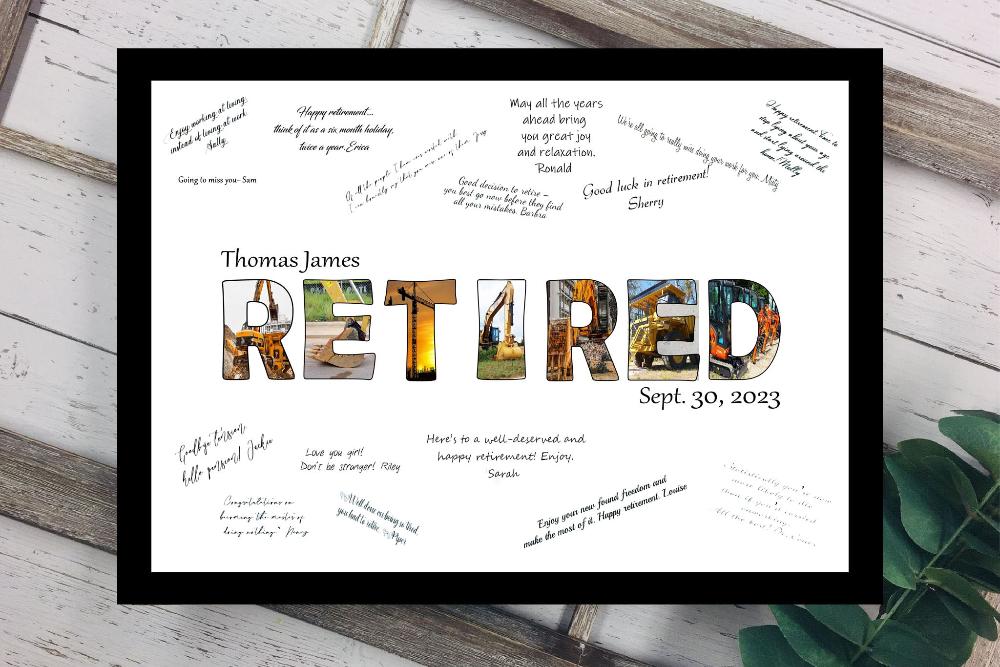 Enjoy working at living,
instead of living at work.
Sally
Happy retirement...
think of it as a six month holiday,
twice a year. Erica
May all the years
ahead bring
you great joy
and relaxation.
Ronald
We're all going to really miss doing your work for you. Misty
Happy retirement. Time to
stop lying about your age
and start lying around the
house. Molly
Going to miss you~ Sam
Of all the people I have ever worked with
I'm honestly say that you were one of them.
Good decision to retire –
you best go now before they find
all your mistakes. Barbra
Good luck in retirement!
Sherry
Thomas James
RETIRED
Sept. 30, 2023
Goodbye tension,
hello pension! Jackie
Love you girl!
Don't be stranger! Riley
Here's to a well-deserved and
happy retirement! Enjoy.
Sarah
Congratulations on
becoming the master of
doing nothing." Nancy
Well done on being so tired
you had to retire. Piper
Enjoy your new found freedom and
make the most of it. Happy retirement. Louise
Statistically you're now
more likely to die
than if you'd carried
All the best!